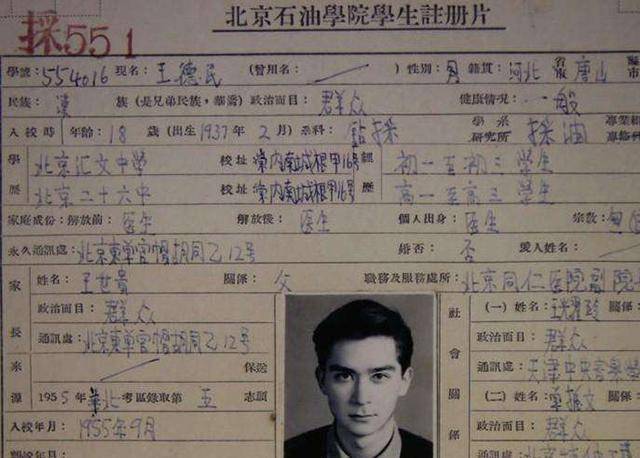 北京石油學院學生註册片
採551
學號：554016 現名：王德民 （曾用名： ） 性別：男 籍貫：河北 省市 唐山 縣市
民族：漢 族（是兄弟民族，華僑）政治面目：群众 健康情况：一般
入校時年齡：18 歲（出生1937年2月）系科：鈷採 學系研究所 採油 專業
學 北京汇文中学 校址 崇内南城根甲16号 經 初一至初三 学生
歷 北京二十六中 校址 崇内南城根甲16号 歷 高一至高三 学生
家庭成份：解放前：医生 解放後：医生 個人出身：医生 宗教：
永久通訊處：北京東單官帽胡同乙12号 婚否：否 愛人姓名：
家長 姓名：王世貴 關係：父 職務及服務處所：北京同仁医院副院
政治面目：群众
通訊處：北京東單官帽胡同乙12号
來源 保送
1955年華北考區錄取第五志願
入校年月：1955年9月
社會關係
（一）姓名： 關係
政治面目：群众
通訊處：天津中央音樂
（二）姓名： 關係
政治面目：群众